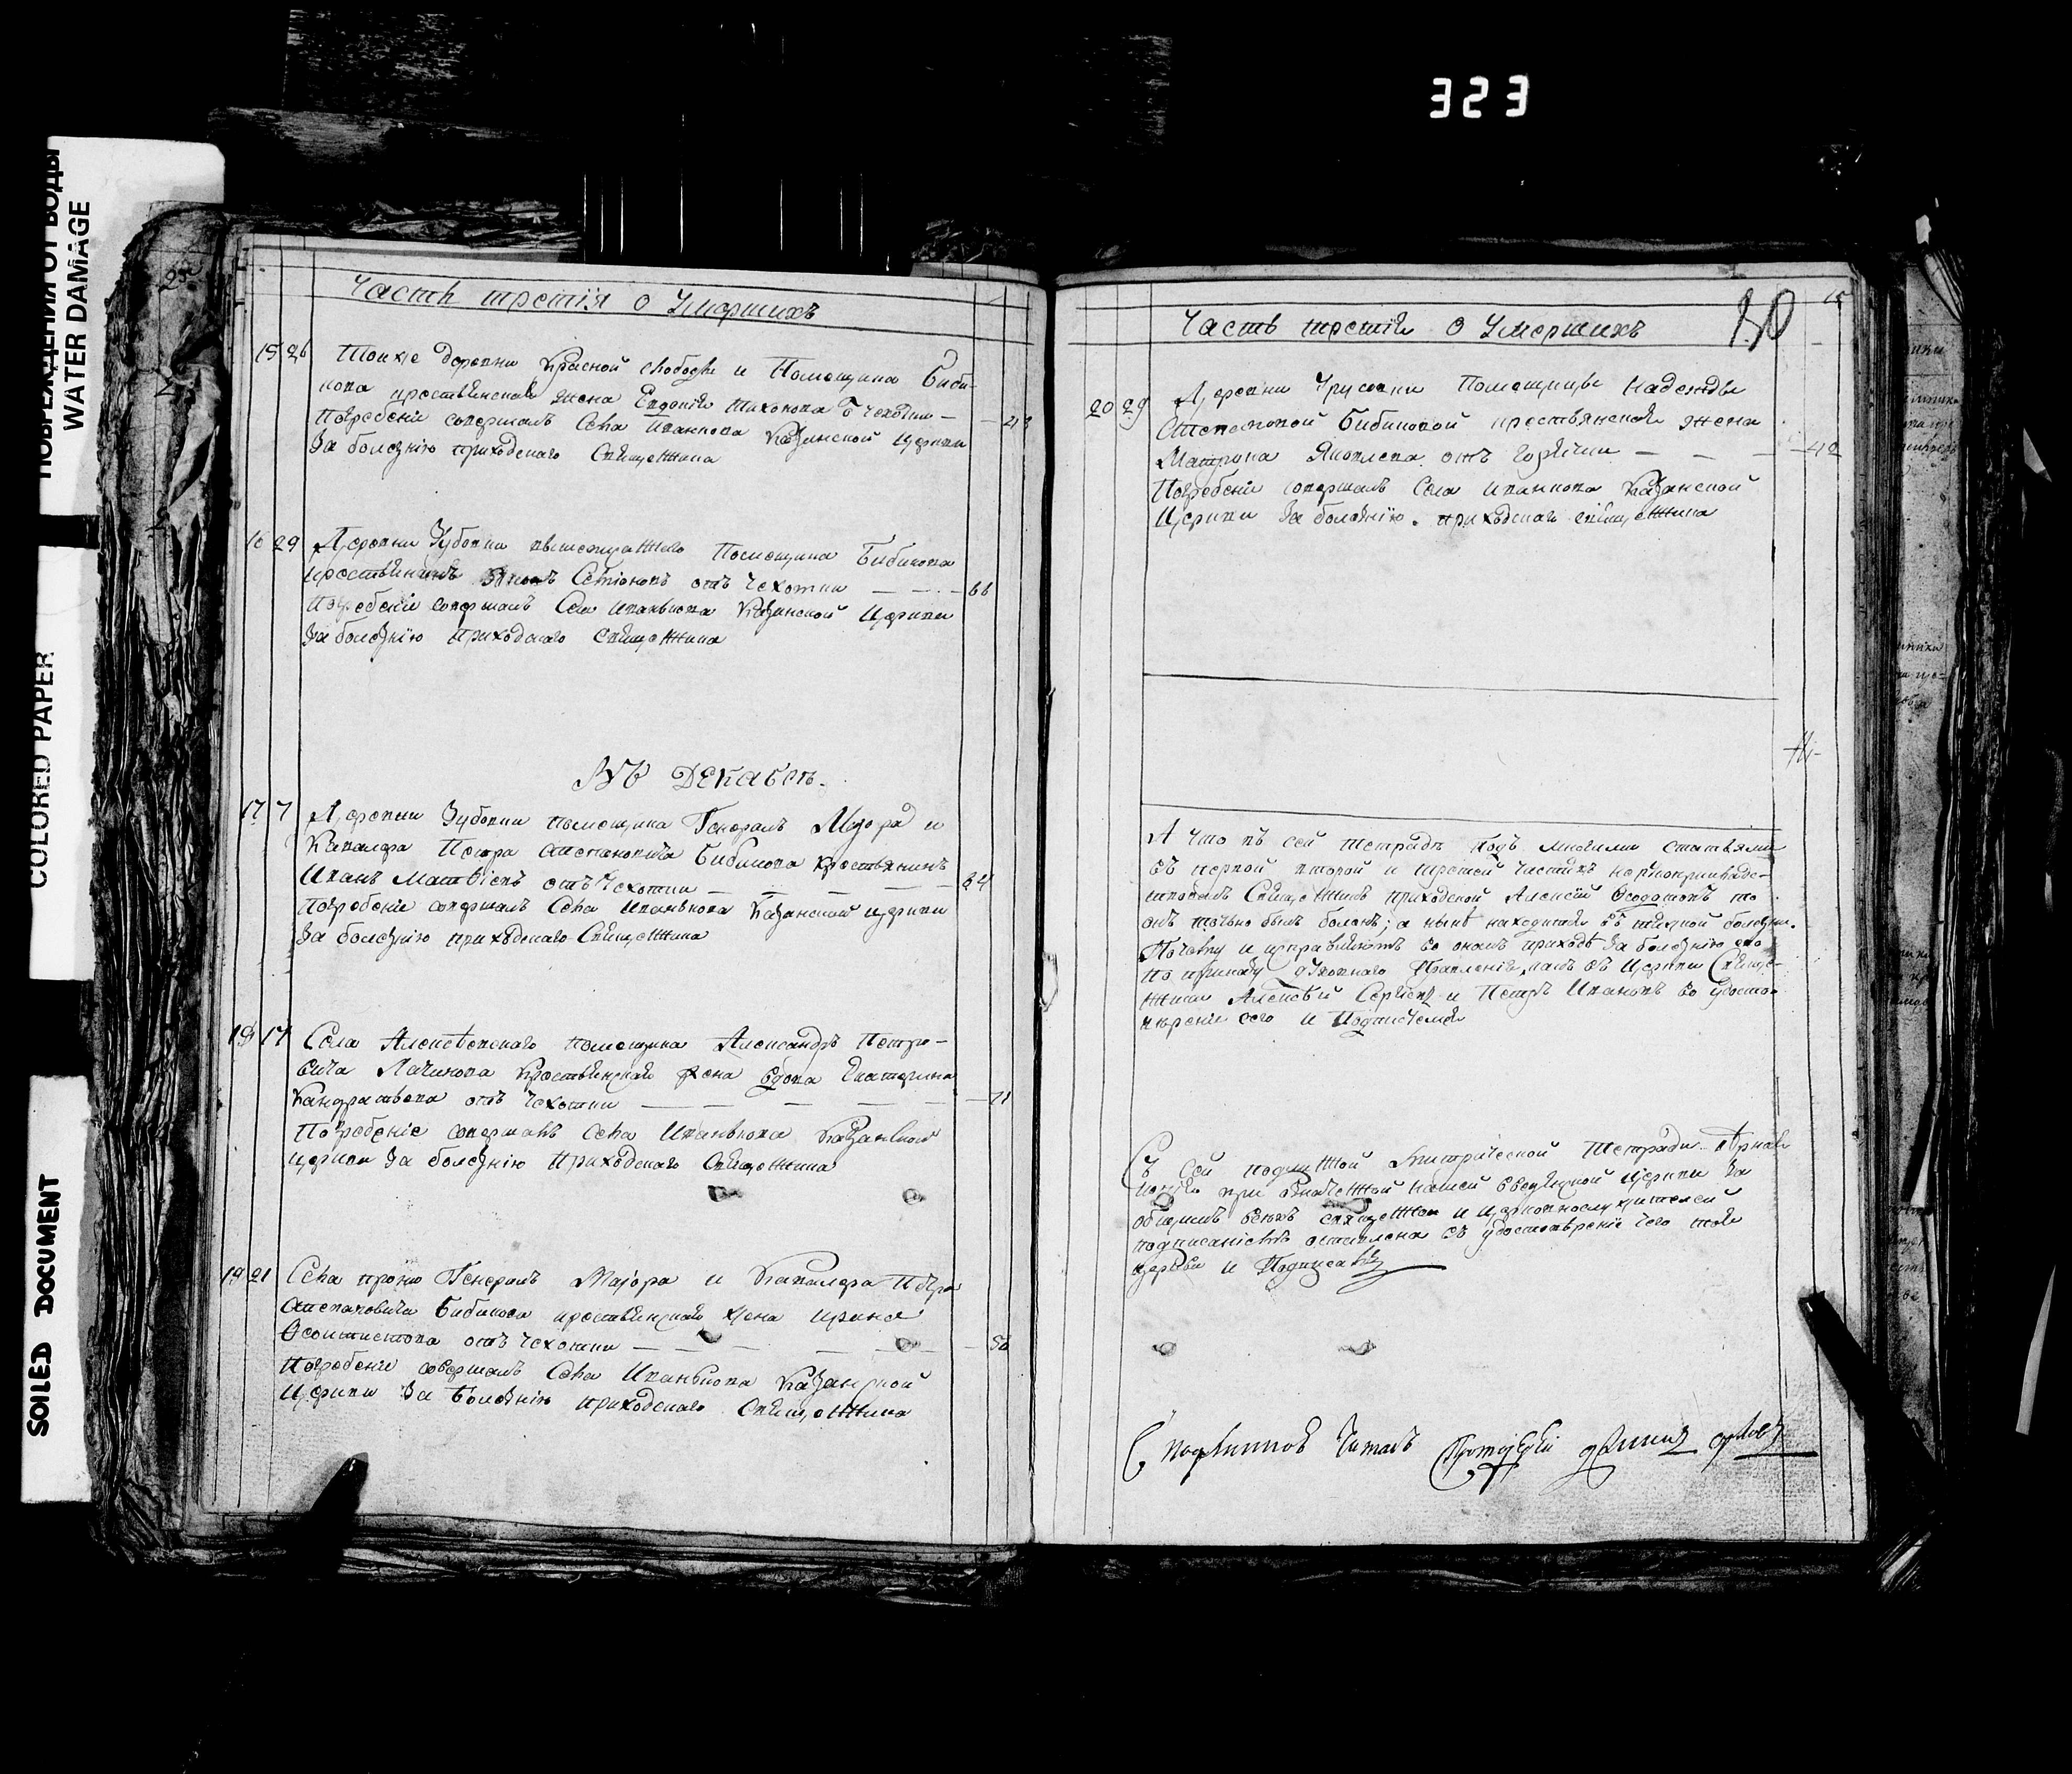 323
ПОВРЕЖДЕНИЯ ОТ ВОДЫ
WATER DAMAGE
COLORED PAPER
SOILED DOCUMENT
Часть третія о Умершихъ
15 26 Тояже деревни Красной слободы и Помещика Биби-
кова крестьянская жена Евдокія Тихонова Ѿ чехотки — 43
Погребеніе совершалъ Села Иванкова Казанской церкви
За болезнію приходскаго Священника
16 29 Деревни Зубовки Помещика Бибикова
крестьянинъ отъ чехотки — 66
Погребеніе совершалъ Села Иванькова Казанской Церкви
За болезнію приходскаго Священника
Въ Декабрѣ.
17 7 Деревни Зубовки помещика Генералъ Маіора и
Кавалера Петра Степановича Бибикова крестьянинъ
Иванъ Матвіевъ отъ чехотки — 64
погребеніе совершалъ Села Иванькова Казанской церкви
За болезнію приходскаго Священника
17 Села Алексѣевскаго помещика Александръ Петро-
вича Лачинова крестьянская жена вдова Екатерина
Кандратьева отъ чехотки — 71
Погребеніе совершалъ Села Иванькова Казанской
церкви За болезнію Приходскаго Священника
19 21 Села Генералъ Маіора и Кавалера Петра
Степановича Бибикова крестьянская жена Ирина
Феоктистова отъ чехотки — 56
Погребеніе совершалъ Села Иванькова Казанской
Церкви За болезнію приходскаго Священника
Часть третія О Умершихъ
20 29 Деревни Помещицы Надежды
Степановой Бибиковой крестьянская жена
Матрона Яковлева отъ горячки — 42
Погребеніе совершалъ Села Иванкова Казанской
Церкви За болезнію приходскаго священника
А что въ сей тетрадѣ подъ многими статьями
въ первой второй и третей частяхъ
Священникъ приходской Алексѣй Федотовъ то
онъ точно былъ боленъ; а нынѣ находится въ тяжкой болезни.
Почему и исправляютъ во ономъ приходѣ За болезнію его
по приказу духовнаго Правленія Церкви Священ-
ники Алексѣй Сергіевъ и Петръ Ивановъ во удосто-
вѣреніе сего и Подписуемся
Съ сей подлинной Метрической Тетради вѣрная
копія при означенной нашей Введенской Церкви За
общимъ всехъ священно и церковнослужителей
подписаніемъ оставлена въ удостовѣреніе чего тоя
церкви и Подписалъ
С подлинной читалъ Протоіерей Орловъ